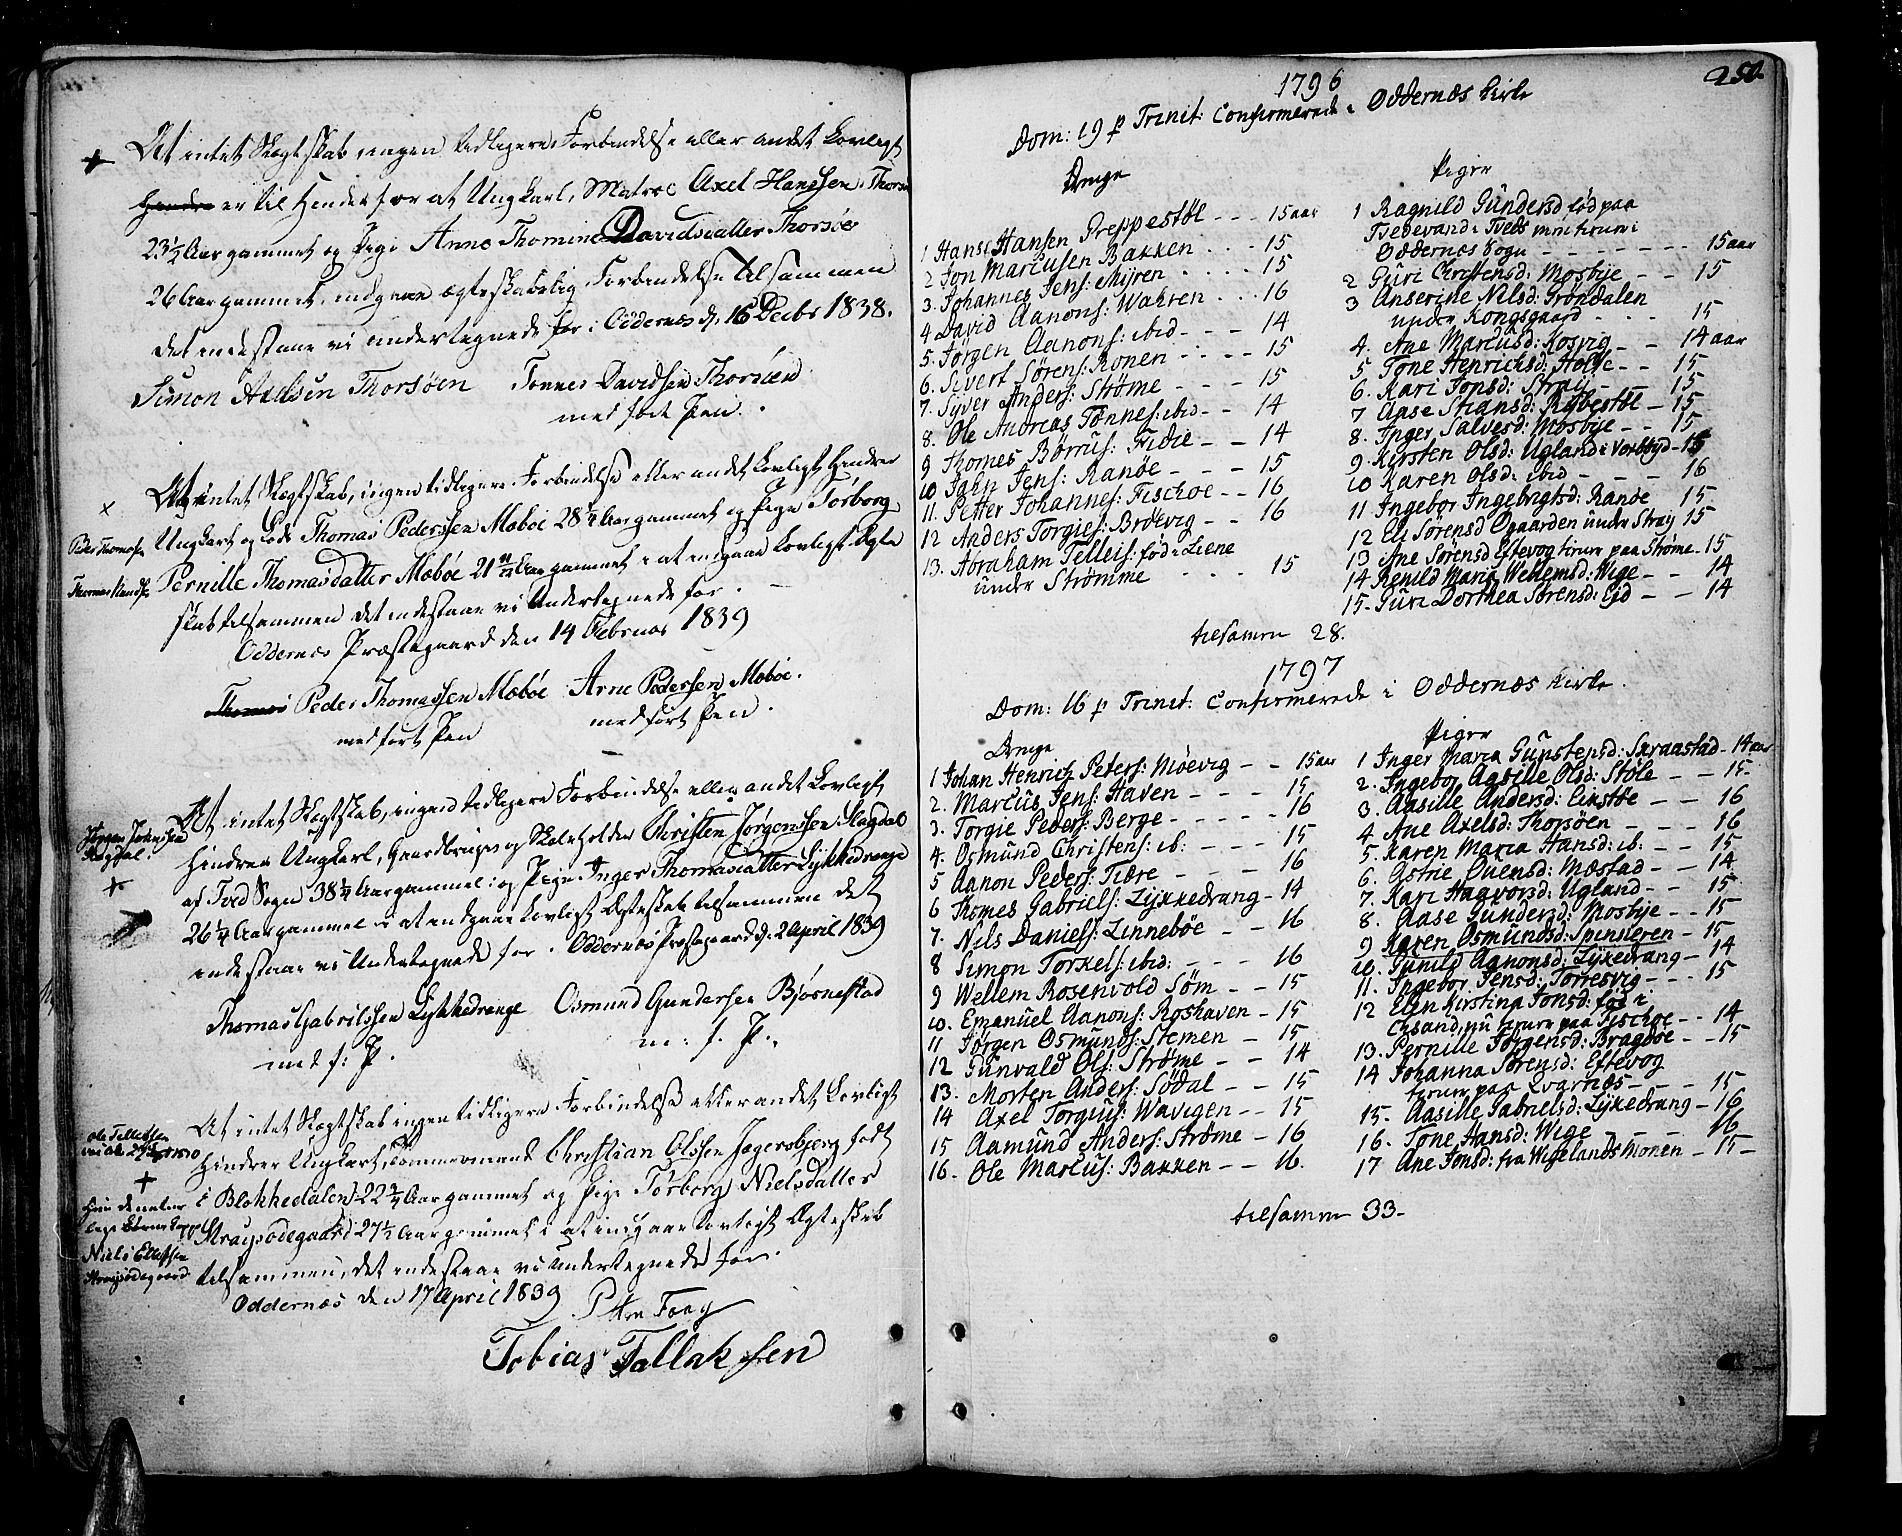 At intet Slegtskab, ingen tidligere Forbindelse eller andet Lovligt
Hindre er til Hinder for at Ungkarl, Matroe Axel Hanssen Thors
23½ Aar gammel og Pige Anne Thomine Davidsdatter Thorsøe
26 Aar gammel, indgaae ægteskabelig Forbindelse tilsammen
det indestaae vi undertegnede for i Oddernæs d. 16 Decbr 1838.
Simon Axelsen Thorsøen Tønnes Davidsen Thorsøen
med ført Pen.
At intet Slegtskab, ingen tidligere Forbindelse eller andet Lovligt Hindrer
Peder Thomasen
Ungkarl og Lods Thomas Pederssen Mæbøe 28¼ Aar gammel og Pige Torborg
Pernille Thomasdatter Mæbøe 21 11/12 Aar gammel i at indgaae Lovligt Ægte
skab tilsammen det indestaae vi Undertegnede for.
Oddernæs Præstegaard den 14 Februar 1839
Thomas Peder Thomassen Mæbøe Arne Pedersen Mæbøe.
med ført Pen med ført Pen.
At intet Slegtskab, ingen tidligere Forbindelse eller andet Lovligt
Jørgen
Slagdal.
Hindrer Ungkarl, Gaardbruger og Skoleholder Christen Jørgenssen Slagdal
af Tved Sogn 38¼ Aar gammel: og Pige Inger Thomasdatter Lykkedrange
26¼ Aar gammel i at indgaae Lovligt Ægteskab tilsammen det
indestaae vi Undertegnede for. Oddernæs Præstegaard d. 2 April 1839
Thomas Gabrielssen Lykkedrange Osmund Gundersen Bjørnestad
med f: P. m: f. P.
At intet Slegtskab ingen tidligere Forbindelse eller andet Lovligt
Ole Tellefsen
Hindrer Ungkarl, Tømmermand Christian Olssen Jegersbjerg født
i Blokkedalen 22¾ Aar gammel og Pige Torborg Nielsdatter
Straisødegaard 27½ Aar gammel i at indgaae Lovligt Ægteskab
Niels Ellefsen
Straisødegaard
tilsammen, det indestaae vi Undertegnede for.
Oddernæs den 17 April 1839
Petter Foag
Tobias Tallaksen
250.
1796
Dom: 19 p Trinit: Confirmerede i Oddernæs Kirke
Drenge
1 Hans Hansen Preppestøl - - - 15 aar
2 Jon Marcusen Bakken - - - 15
3. Johannes Jens: Myren - - - - 15
4 David Aanons: Wahren - - - 16
5. Jörgen Aanons: ibid - - - 14
6. Sivert Sörens: Ronen - - - - 15
7. Syver Anders: Strøme - - - 15
8. Ole Andreas Tønnes: ibid - - 14
9 Thomes Børrus: Fidie - - 14
10 John Jens: Ranøe - - - 15
11. Petter Johannes: Fischoe - - 16
12 Anders Torgies: Brøevig - - 16
13. Abraham Telleis: fød i Liene
under Strømme - - - 15
Piger
1 Ragnild Gundersd fød paa
Tiedevand i Tveds men tiener i
Oddernæs Sogn - - - - - - 15 aar
2 Guri Christensd: Mosbye - - 15
3 Anserine Nilsd: Grøndalen
under Kongsgaard - - - 15
4. Ane Marcusd: Kosvig - - 14 aar
5 Tone Henrichsd: Holse - - 15
6. Kari Jonsd: Straij - - 15
7 Aase Stiansd: Rybestøl - 15
8. Inger Salvesd: Mosbye - - 15
9. Kirsten Olsd: Ugland i Vatbygd - 15
10 Karen Olsd: ibid - - - - 16
11 Ingebor Ingebrigtsd: Ranøe 15
12 Eli Sørensd Øgaarden under Straij 15
13 Ane Sørensd Eftevog tiener paa Strøme - 15
14 Renild Maria Wellemsd: Wige - - 14
15. Guri Dorthea Sørensd: Ejd - - 14
tilsamen 28.
1797
Dom: 16 p Trinit: Confirmerede i Oddernæs Kirke.
Drenge
1 Johan Henrich Peters: Møevig - - 15 aar
2. Marcus Jens: Haven - - - - 15
3. Torgie Peders: Berge - - - - - 16
4. Osmund Christens: ib: - - - - 15
5 Aanon Peders: Tiære - - - - 16
6 Thomes Gabriels: Lykkedrang - 14
7. Nils Daniels: Linnebøe - - 16
8 Simon Torkels: ibid: - - - 16
9 Wellem Rosenvold Søm - - 15
10. Emanuel Aanons: Roshaven - 15
11 Jörgen Osmunds: Stemen - 15
12 Gunvald Ols: Strøme - - 14
13. Morten Anders: Sødal - - 15
14 Axel Torgius: Wavigen - - 15
15 Aamund Anders: Strøme - 16
16. Ole Marcus: Bakken - - 16.
Piger
1 Inger Maria Gunstensd: Skraastad - 14 aar
2. Ingebor Aasille Olsd: Støle - - 15-
3. Aasille Andersd: Eikstøe - - 16
4 Ane Axelsd: Thorsøen - - - 16
5. Karen Maria Hansd: ib: - - 15
6. Astrie Ouensd: Mæstad - - 14
7. Kari Haagvorsd: Ugland - - 15
8. Aase Gundersd: Mosbye - - 15
9 Karen Osmundsd: Spinsleren - 15
10. Gunild Aanonsd: Lykedrang - 14
11. Ingebor Jensd: Torresvig - - - 15
12 Elen Kirstina Jonsd: fød i
Chsand, nu tiener paa Fischoe - - 14
13. Pernille Jörgensd: Bragdøe - - 15
14 Johanna Sørensd: Eftevog
tiener paa Qvarnæs - - - 15
15. Aasille Gabrielsd: Lykedrang - 16
16. Tone Hansd: Wige - - - - 16
17 Ane Jonsd: fra Wigelands Monen - 15-
tilsamn 33-